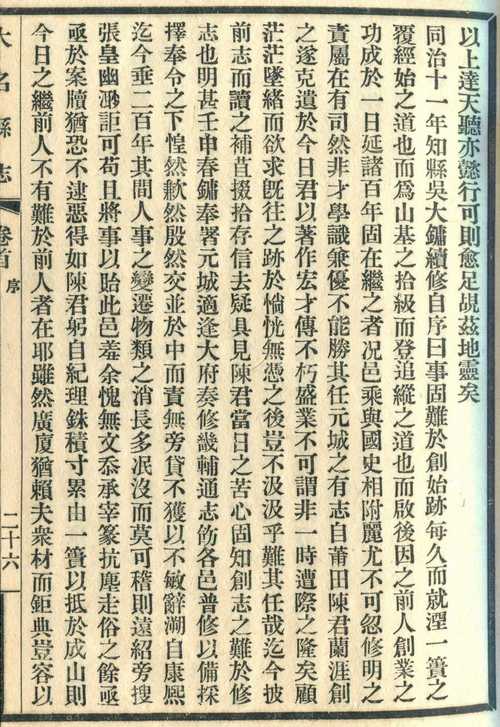 以上達天聽亦懿行可則愈足覘茲地靈矣
同治十一年知縣吳大鏞續修自序曰事固難於創始跡每久而就湮一簣之
覆經始之道也而爲山基之拾級而登追縱之道也而啟後因之前人創業之
功成於一日延諸百年固在繼之者况邑乘與國史相附麗尤不可忽修明之
責屬在有司然非才學識兼優不能勝其任元城之有志自莆田陳君蘭涯創
之遂克遺於今日君以著作宏才傳不朽盛業不可謂非一時遭際之隆矣顧
茫茫墜緒而欲求旣往之跡於惝恍無憑之後豈不汲汲乎難其任哉迄今披
前志而讀之補苴掇拾存信去疑具見陳君當日之苦心固知創志之難於修
志也明甚壬申春鏞奉署元城適逢大府奏修畿輔通志飭各邑普修以備採
擇奉令之下惶然歉然殷然交並於中而責無旁貸不獲以不敏辭溯自康熙
迄今垂二百年其間人事之變遷物類之消長多泯沒而莫可稽則遠紹旁搜
張皇幽渺詎可苟且將事以貽此邑羞余愧無文忝承宰篆抗塵走俗之餘亟
亟於案牘猶恐不逮惡得如陳君躬自紀理銖積寸累由一簣以抵於成山則
今日之繼前人不有難於前人者在耶雖然廣廈猶賴夫衆材而鉅典豈容以
大名縣志
卷首
序
二十六